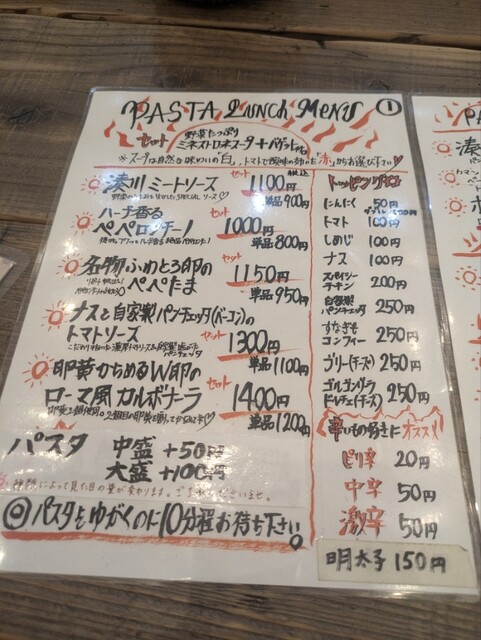 PASTA Lunch Menu ①
セット 野菜たっぷり
ミネストローネスープ+バゲット
※スープは自然な味わいの「白」、トマトで酸味の効いた「赤」からお選び下さい♡
湊川ミートソース セット 1100円 税込
単品900円
ハーブ香る
ペペロンチーノ セット 1000円
単品800円
名物ふわとろ卵の
ペペたま セット 1150円
単品950円
ナスと自家製パンチェッタ(ベーコン)の
トマトソース セット 1300円
単品1100円
卵黄からめるW卵の
ローマ風カルボナーラ セット 1400円
単品1200円
パスタ 中盛 +50円
大盛 +100円
種類によって見た目の量が変わります。ご了承くださいませ。
◎パスタをゆがくのに10分程お待ち下さい。
トッピング
にんにく 50円
トマト 100円
しめじ 100円
ナス 100円
スパイシー
チキン 200円
自家製
パンチェッタ 250円
すなぎも
コンフィー 250円
ブリー(チーズ) 250円
ゴルゴンゾーラ
ドルチェ(チーズ) 250円
辛いもの好きにオススメ!
ピリ辛 20円
中辛 50円
激辛 50円
明太子 150円
PA
湊